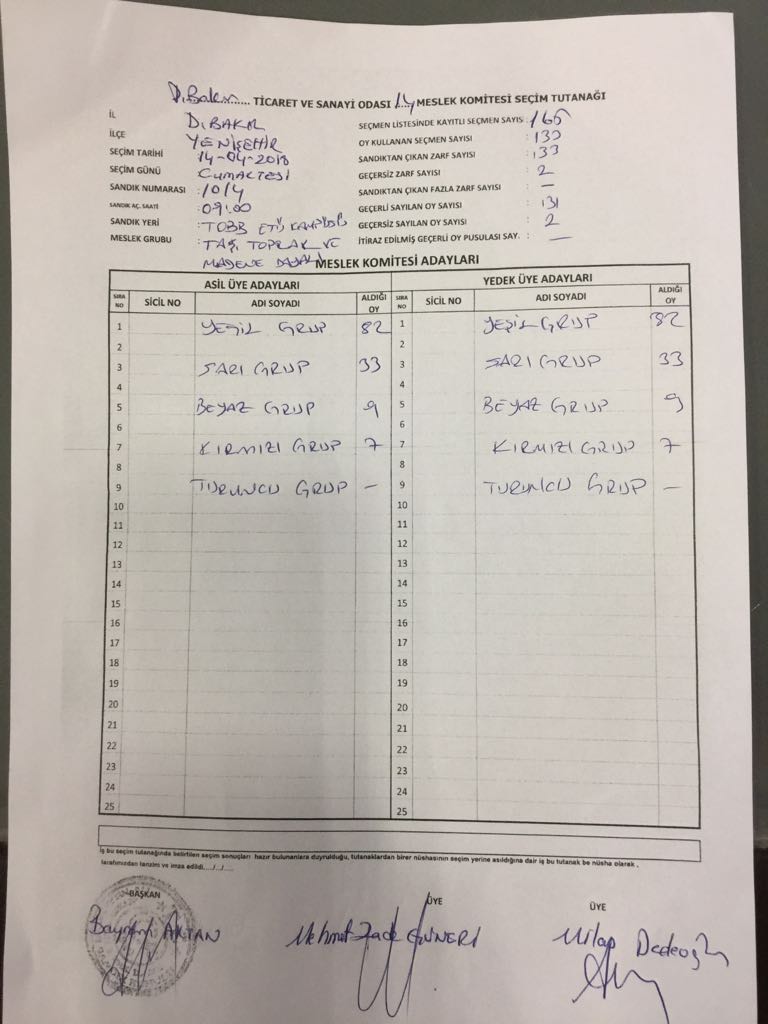 D.Bakır..... TİCARET VE SANAYİ ODASI 14 MESLEK KOMİTESİ SEÇİM TUTANAĞI
İL D.BAKIR
İLÇE YENİŞEHİR
SEÇİM TARİHİ 14-04-2018
SEÇİM GÜNÜ CUMARTESİ
SANDIK NUMARASI :1014
SANDIK AÇ. SAATİ :09:00
SANDIK YERİ :TOBB ETİS KAMPÜSÜ
MESLEK GRUBU :TAŞ, TOPRAK VE
MADENE DAYALI
SEÇMEN LİSTESİNDE KAYITLI SEÇMEN SAYIS : 165
OY KULLANAN SEÇMEN SAYISI : 133
SANDIKTAN ÇIKAN ZARF SAYISI : 133
GEÇERSİZ ZARF SAYISI : 2
SANDIKTAN ÇIKAN FAZLA ZARF SAYISI : —
GEÇERLİ SAYILAN OY SAYISI : 131
GEÇERSİZ SAYILAN OY SAYISI : 2
İTİRAZ EDİLMİŞ GEÇERLİ OY PUSULASI SAY. : —
MESLEK KOMİTESİ ADAYLARI
ASİL ÜYE ADAYLARI YEDEK ÜYE ADAYLARI
SIRA NO SİCİL NO ADI SOYADI ALDIĞI OY SIRA NO SİCİL NO ADI SOYADI ALDIĞI OY
1 YEŞİL GRUP 82 1 YEŞİL GRUP 82
2 2
3 SARI GRUP 33 3 SARI GRUP 33
4 4
5 BEYAZ GRUP 9 5 BEYAZ GRUP 9
6 6
7 KIRMIZI GRUP 7 7 KIRMIZI GRUP 7
8 8
9 TURUNCU GRUP — 9 TURUNCU GRUP —
10 10
11 11
12 12
13 13
14 14
15 15
16 16
17 17
18 18
19 19
20 20
21 21
22 22
23 23
24 24
25 25
İş bu seçim tutanağında belirtilen seçim sonuçları hazır bulunanlara duyrulduğu, tutanaklardan birer nüshasının seçim yerine asıldığına dair iş bu tutanak be nüsha olarak ,
tarafımızdan tanzim ve imza edildi..../..../......
BAŞKAN ÜYE ÜYE
Bayram AKTAN Mehmet Mılap Dedeoğlu